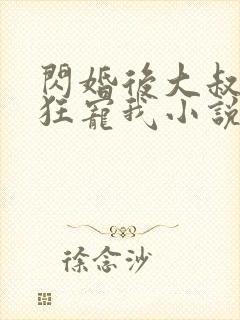 閃婚後大叔
狂寵我小說
徐念沙